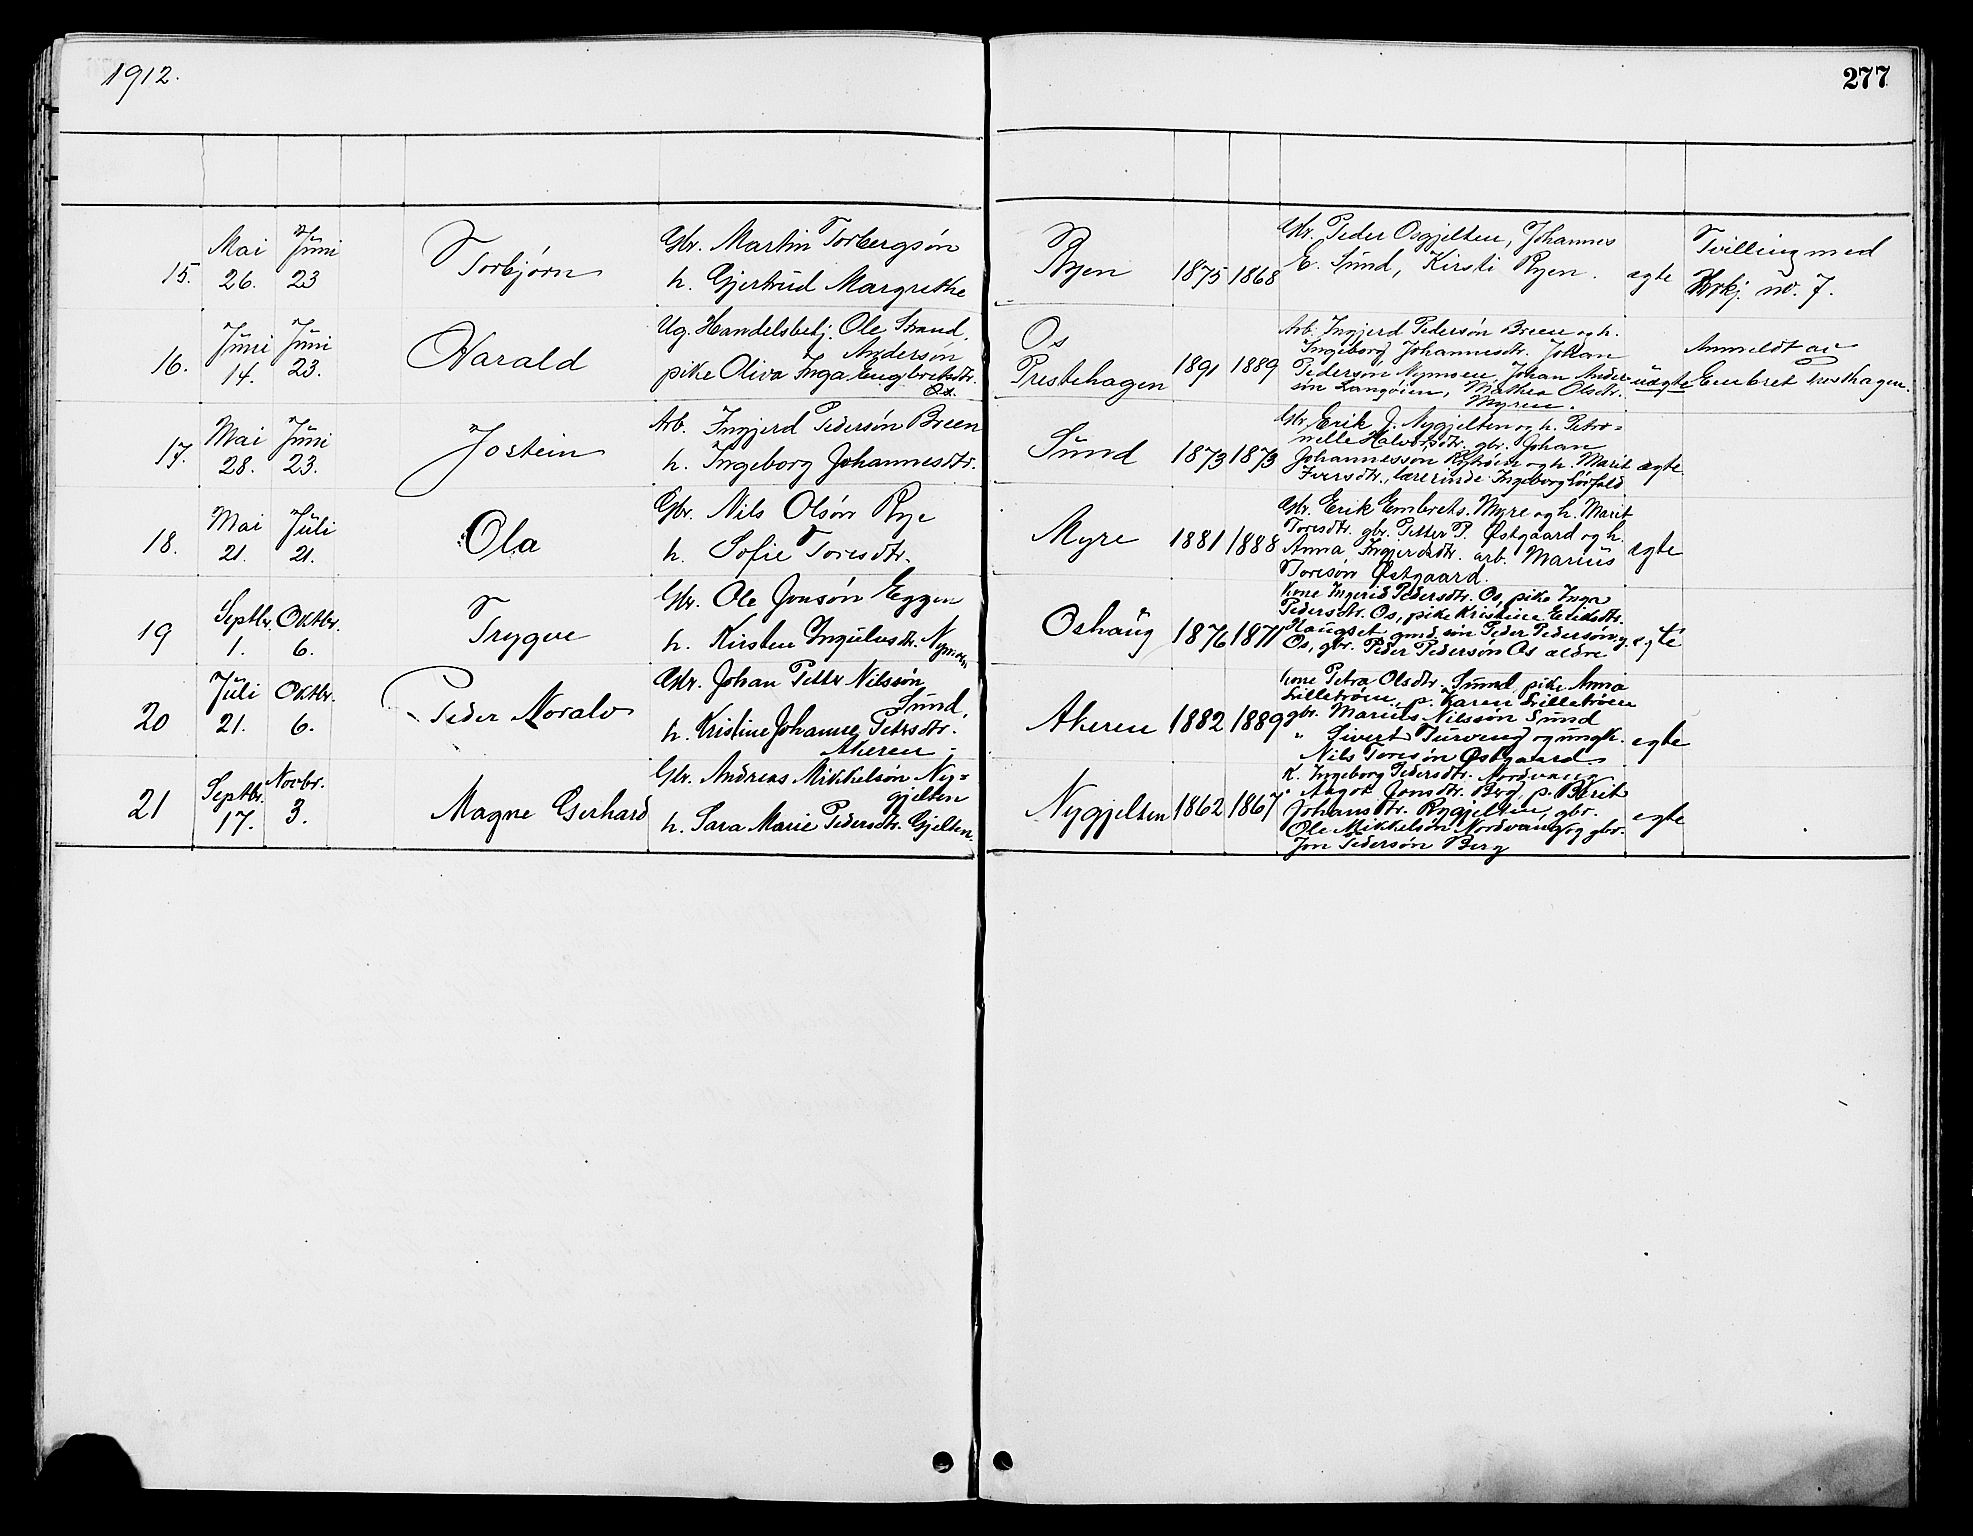 1912.
277
15.
Mai 26.
Juni 23
Torbjørn
Gbr. Martin Torbergsøn
h. Gjertrud Margrethe
Ryen
1875
1868
Gbr. Peder Osgjelten, Johannes
E. Sund, Kirsti Ryen.
egte
Tvilling med
kj. no. 7.
16.
Juni 14.
Juni 23.
Harald
Ug. Handelsbetj. Ole Strand,
Andersøn
pike Oliva Inga Engbretsdtr.
Os.
Os
Prestehagen
1891
1889
Arb. Ingjerd Pedersøn Breen og h.
Ingeborg Johannesdtr. Johan
Pedersøn Nymoen, Johan Ander-
søn Langøien, Mathea Olsdtr.
Myren.
uegte
Anmeldt av
Embret
17.
Mai 28.
Juni 23.
Jostein
Arb. Ingjerd Pedersøn Breen
h. Ingeborg Johannesdtr.
Sund
1873
1873
Gbr. Erik J. Nygjelten og h. Petro-
nelle Halvorsdtr. gbr. Johan
Johannessøn og h. Marit
Iversdtr., lærerinde Ingeborg
egte
18.
Mai 21.
Juli 21.
Ola
Gbr. Nils Olsøn Rye
h. Sofie Toresdtr.
Myre
1881
1888
Gbr. Erik Embrets. Myre og h. Marit
Toresdtr. gbr. Petter P. Østgaard og h.
Anna Ingjerdsdtr. arb. Marius
Toresøn Østgaard.
egte
19
Septbr. 1.
Oktbr. 6.
Trygve
Gbr. Ole Jonsøn Eggen
h. Kirsten Ingulvsdtr. Nymoen
Oshaug
1876
1871
Kone Ingerid Pedersdtr. Os, pike Inga
Pedersdtr. Os, pike Kristine Eriksdtr.
Haugset, gmd. søn Peder Pedersøn y.
Os, gbr. Peder Pedersøn Os ældre
egte
20
Juli 21.
Oktbr. 6.
Peder Noralv
Gbr. Johan Petter Nilssøn
Sund,
h. Kristine Johanne Petersdtr.
Akeren
Akeren
1882
1889
Kone Petra Olsdtr. Sund, pike Anna
Lilletrøen, p. Karen Lilletrøen
gbr. Marius Nilssøn Sund
" Sivert Turveng og ungk.
Nils Toresøn Østgaard
egte
21
Septbr. 17.
Novbr. 3.
Magne Gerhard
Gbr. Andreas Mikkelsøn Ny-
gjelten
h. Sara Marie Pedersdtr. Gjelten
Nygjelten
1862
1867
K. Ingeborg Pedersdtr. Nordvang
" Aagot Jonsdtr. Berg, p. Berit
Johansdtr. Rygjelten, gbr.
Ole Mikkelsøn Nordvang og gbr.
Jon Pedersøn Berg
egte